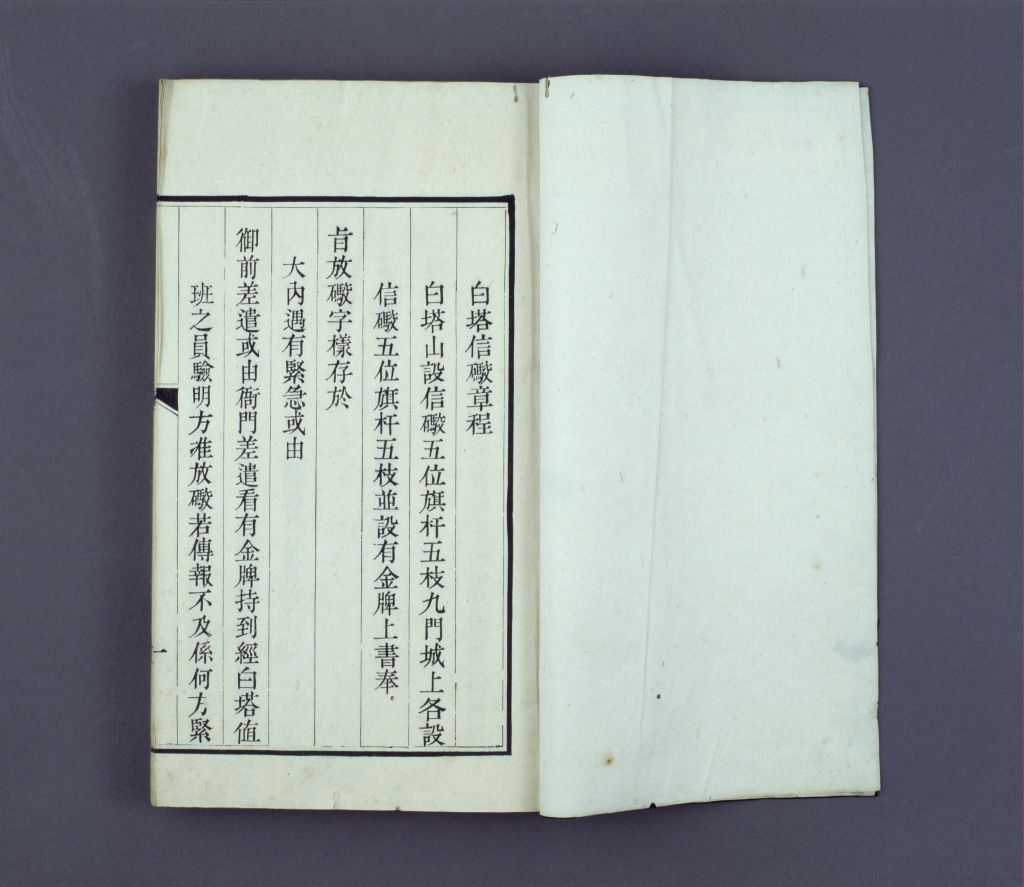 白塔信礮章程
白塔山設信礮五位旗杆五枝九門城上各設
信礮五位旗杆五枝並設有金牌上書奉
旨放礮字樣存於
大內遇有緊急或由
御前差遣或由衙門差遣看有金牌持到經白塔値
班之員驗明方准放礮若傳報不及係何方緊
一